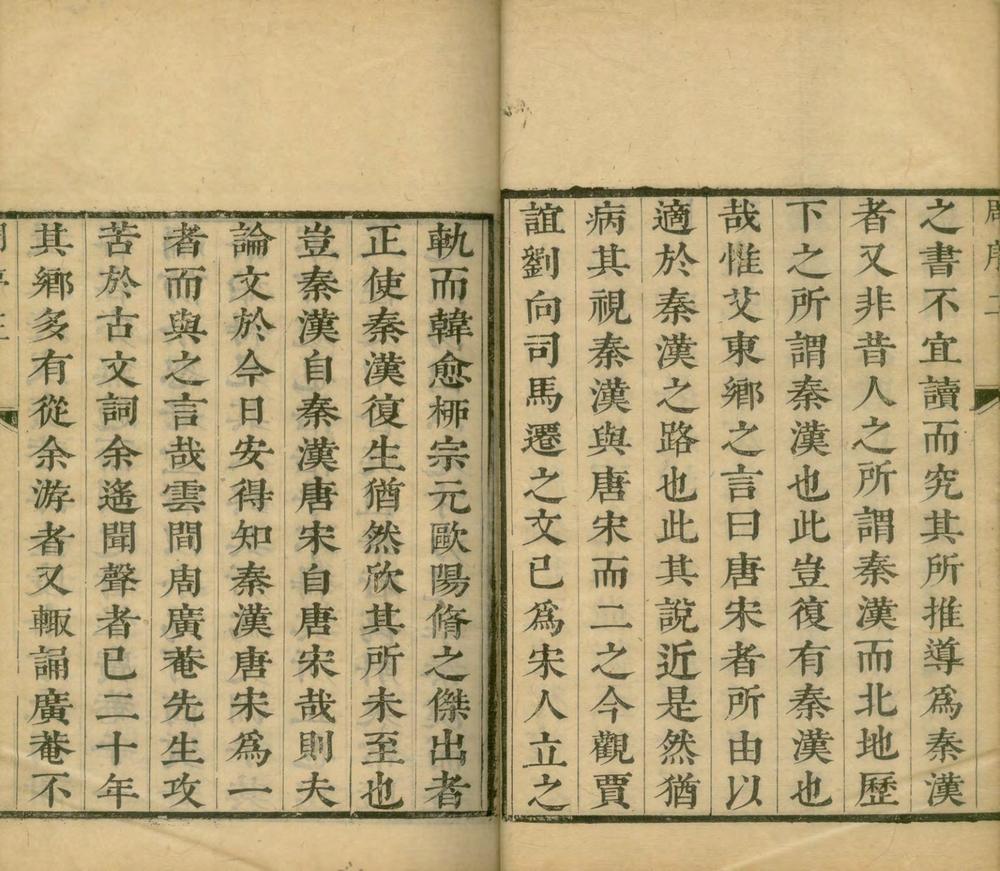 之書不宜讀而究其所推導爲秦漢
者又非昔人之所謂秦漢而北地歷
下之所謂秦漢也此豈復有秦漢也
哉惟艾東鄉之言曰唐宋者所由以
適於秦漢之路也此其說近是然猶
病其視秦漢與唐宋而二之今觀賈
誼劉向司馬遷之文已爲宋人立之
軌而韓愈桺宗元歐陽脩之傑出者
正使秦漢復生猶然欣其所未至也
豈秦漢自秦漢唐宋自唐宋哉則夫
論文於今日安得知秦漢唐宋爲一
者而與之言哉雲間周廣菴先生攻
苦於古文詞余遙聞聲者已二十年
其鄉多有從余游者又輙誦廣菴不